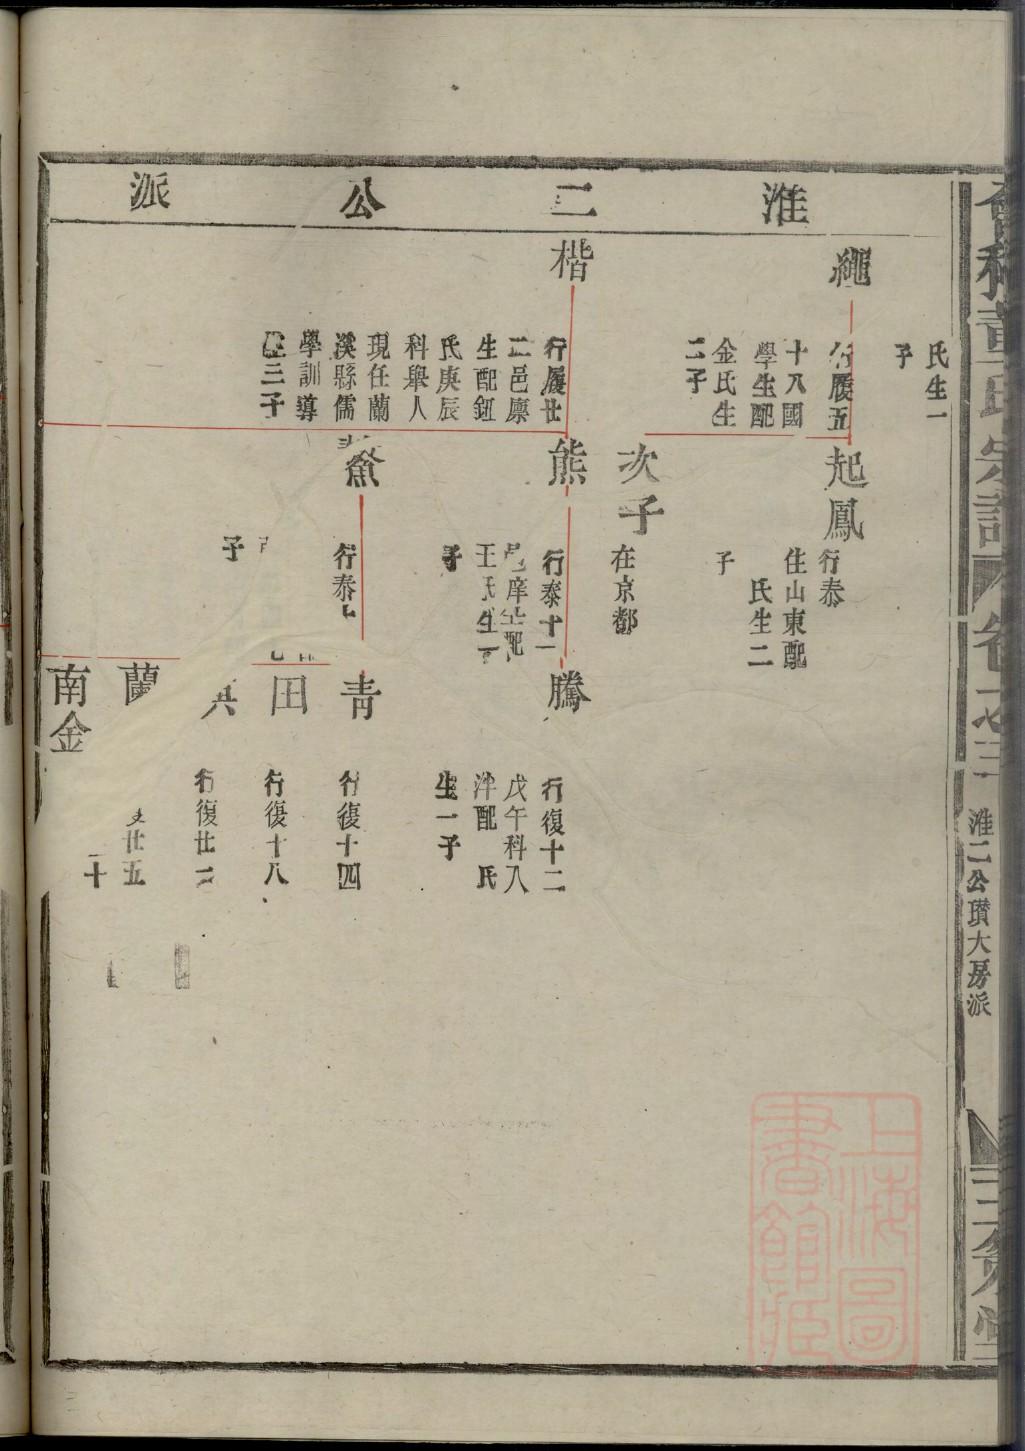 淮二公派
氏生一
子
繩
行履五
十八國
學生配
金氏生
二子
起鳳
行泰
住山東配
氏生二
子
次子
在京都
楷
行履廿
二邑廩
生配鈕
氏庚辰
科舉人
現任蘭
溪縣儒
學訓導
生三子
熊
行泰十一
邑庠生配
王氏生一
子
騰
行復十二
戊午科入
泮配 氏
生一子
行泰
子
青
行復十四
田
行復十八
行復廿二
蘭
廿五
南金
十
淮二公瓚大房派
上海圖
書館藏